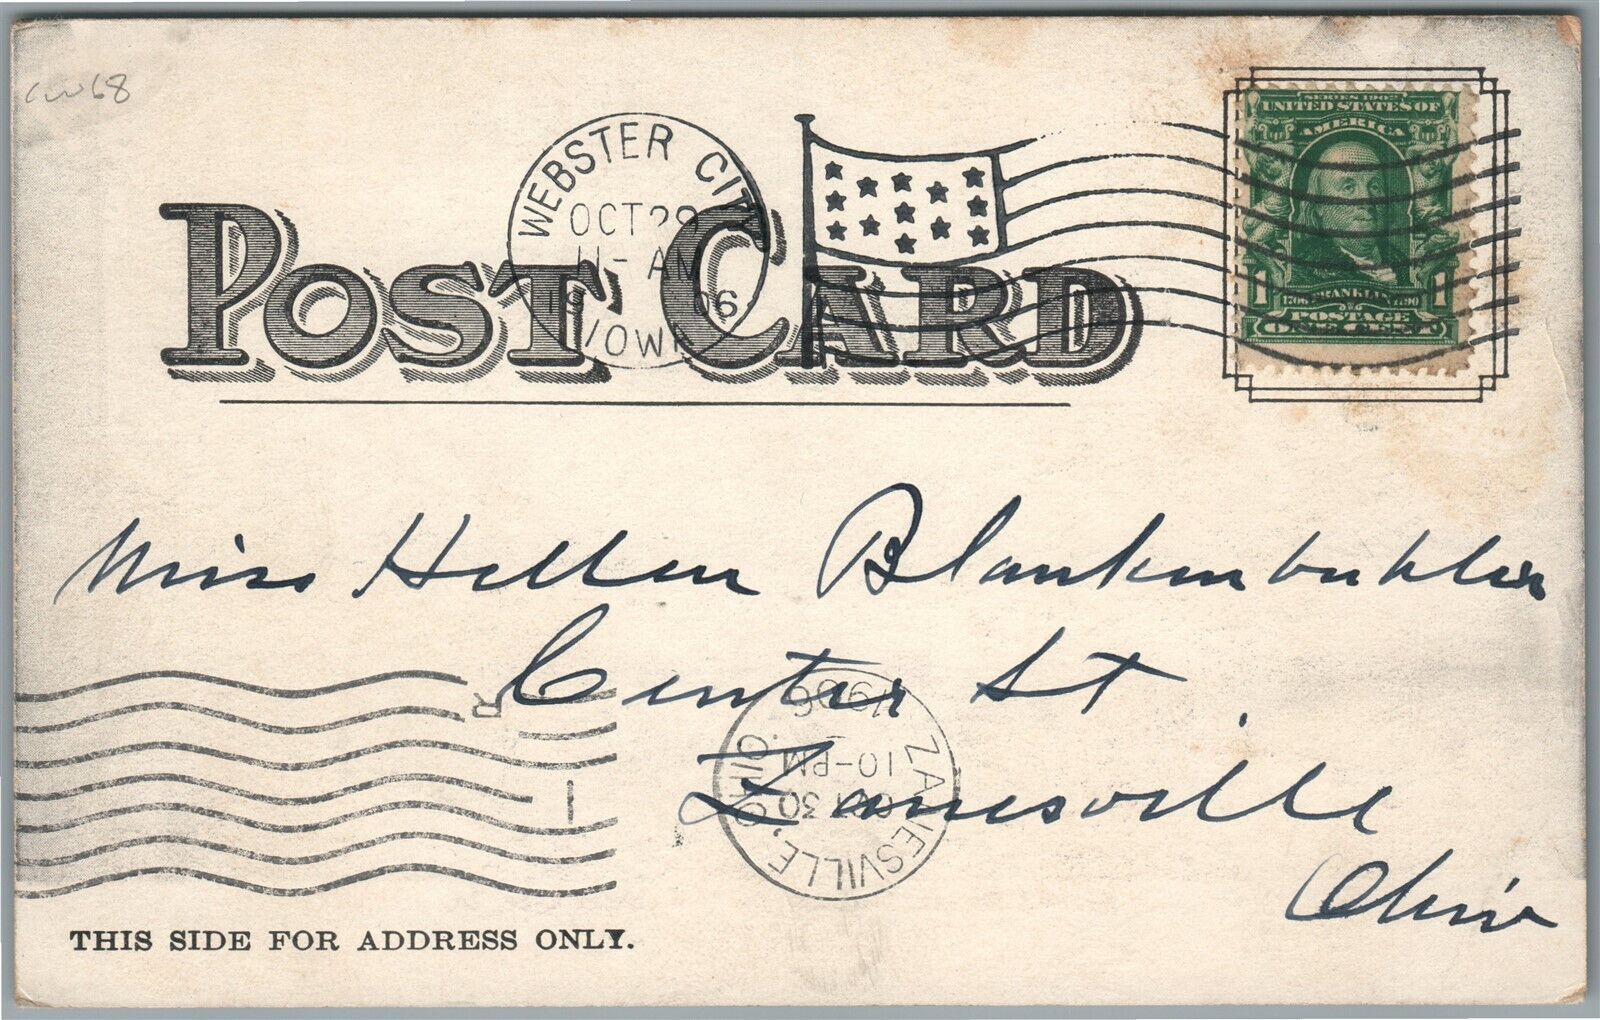 SERIES 1902
UNITED STATES OF
AMERICA
1 FRANKLIN 1
POSTAGE
ONE CENT
WEBSTER CITY
OCT 29
11-AM
1906
IOWA
POST CARD
Miss Hellen
Center St
Zanesville
Ohio
R
1
ZANESVILLE, OHIO.
OCT 30
10-PM
1906
THIS SIDE FOR ADDRESS ONLY.